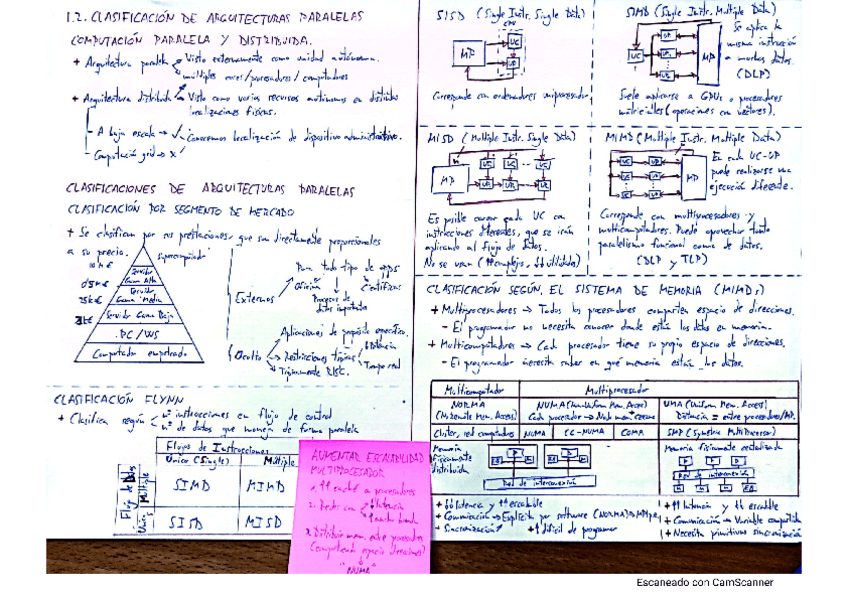 1.2. CLASIFICACIÓN DE ARQUITECTURAS PARALELAS
COMPUTACIÓN PARALELA Y DISTRIBUIDA.
+ Arquitectura paralela → Visto externamente como unidad autónoma.
múltiples cores/procesadores/computadores
+ Arquitectura distribuida → Visto como varios recursos autónomos en distintas
localizaciones físicas.
- A baja escala → ✓ Conocemos localización de dispositivo administrativo.
- Computación grid → x
CLASIFICACIONES DE ARQUITECTURAS PARALELAS
CLASIFICACIÓN POR SEGMENTO DE MERCADO
+ Se clasifican por sus prestaciones, que son directamente proporcionales
a su precio.
Supercomputador
Servidor
Gama Alta
Servidor
Gama Media
Servidor Gama Baja
PC / WS
Computador empotrado
Externos
Para todo tipo de apps
Oficina
Científicas
Procesos de
datos importantes
Oculto
Aplicaciones de propósito específico.
Restricciones típicas
Tiempo real
Típicamente RISC.
CLASIFICACIÓN FLYNN
+ Clasifica según
nº instrucciones en flujo de control
nº de datos que maneja de forma paralela
Flujos de Instrucciones
Único (Single)
Múltiple
Flujo de Datos
Múltiple
SIMD
MIMD
SISD
MISD
AUMENTAR ESCALABILIDAD
MULTIPROCESADOR
1. ↑↑ caché a procesadores
↓ latencia
↑ ancho banda
3. Distribuir mem. entre procesadores
(Compartiendo espacio direcciones)
"NUMA"
SISD (Single Instr. Single Data)
MP
UC
UP
Corresponde con ordenadores uniprocesador
SIMD (Single Instr. Multiple Data)
UC
UP
UP
UP
MP
Se aplica la
misma instrucción
a muchos datos.
(DLP)
Suele aplicarse a GPUs o procesadores
matriciales (operaciones con vectores).
MISD (Multiple Instr. Single Data)
MP
UC
UC
UC
UP
UP
UP
Es posible correr cada UC con
instrucciones diferentes, que se irán
aplicando al flujo de datos.
No se usan (↑↑ complejo, ↓↓ utilidades)
MIMD (Multiple Instr. Multiple Data)
UC
UP
UC
UP
UC
UP
MP
En cada UC-UP
puede realizarse una
ejecución diferente.
Corresponde con multiprocesadores y
multicomputadores. Puede aprovechar tanto
paralelismo funcional como de datos.
(DLP y TLP)
CLASIFICACIÓN SEGÚN EL SISTEMA DE MEMORIA (MIMDs)
+ Multiprocesadores → Todos los procesadores comparten espacio de direcciones.
- El programador no necesita conocer donde están los datos en memoria.
+ Multicomputadores → Cada procesador tiene su propio espacio de direcciones.
- El programador necesita saber en qué memoria están los datos.
Multicomputador
Multiprocesador
NORMA
NUMA (Non Uniform Mem. Access)
UMA (Uniform Mem. Access)
Distancia = entre procesadores/MP.
Cluster, red computadores
NUMA
CC-NUMA
COMA
SMP (Symetric MultiProcessor)
Memoria
físicamente
distribuida
Red de interconexión
Memoria físicamente centralizada
Red de interconexión
+ ↓↓ latencia y ↑↑ escalable
+ Comunicación → Explícita por software (NORMA)
- Sincronización
+ ↑↑ difícil de programar
+ ↑↑ latencia y ↓↓ escalable
+ Comunicación → Variable compartida
+ Necesita primitivas sincronización
Escaneado con CamScanner